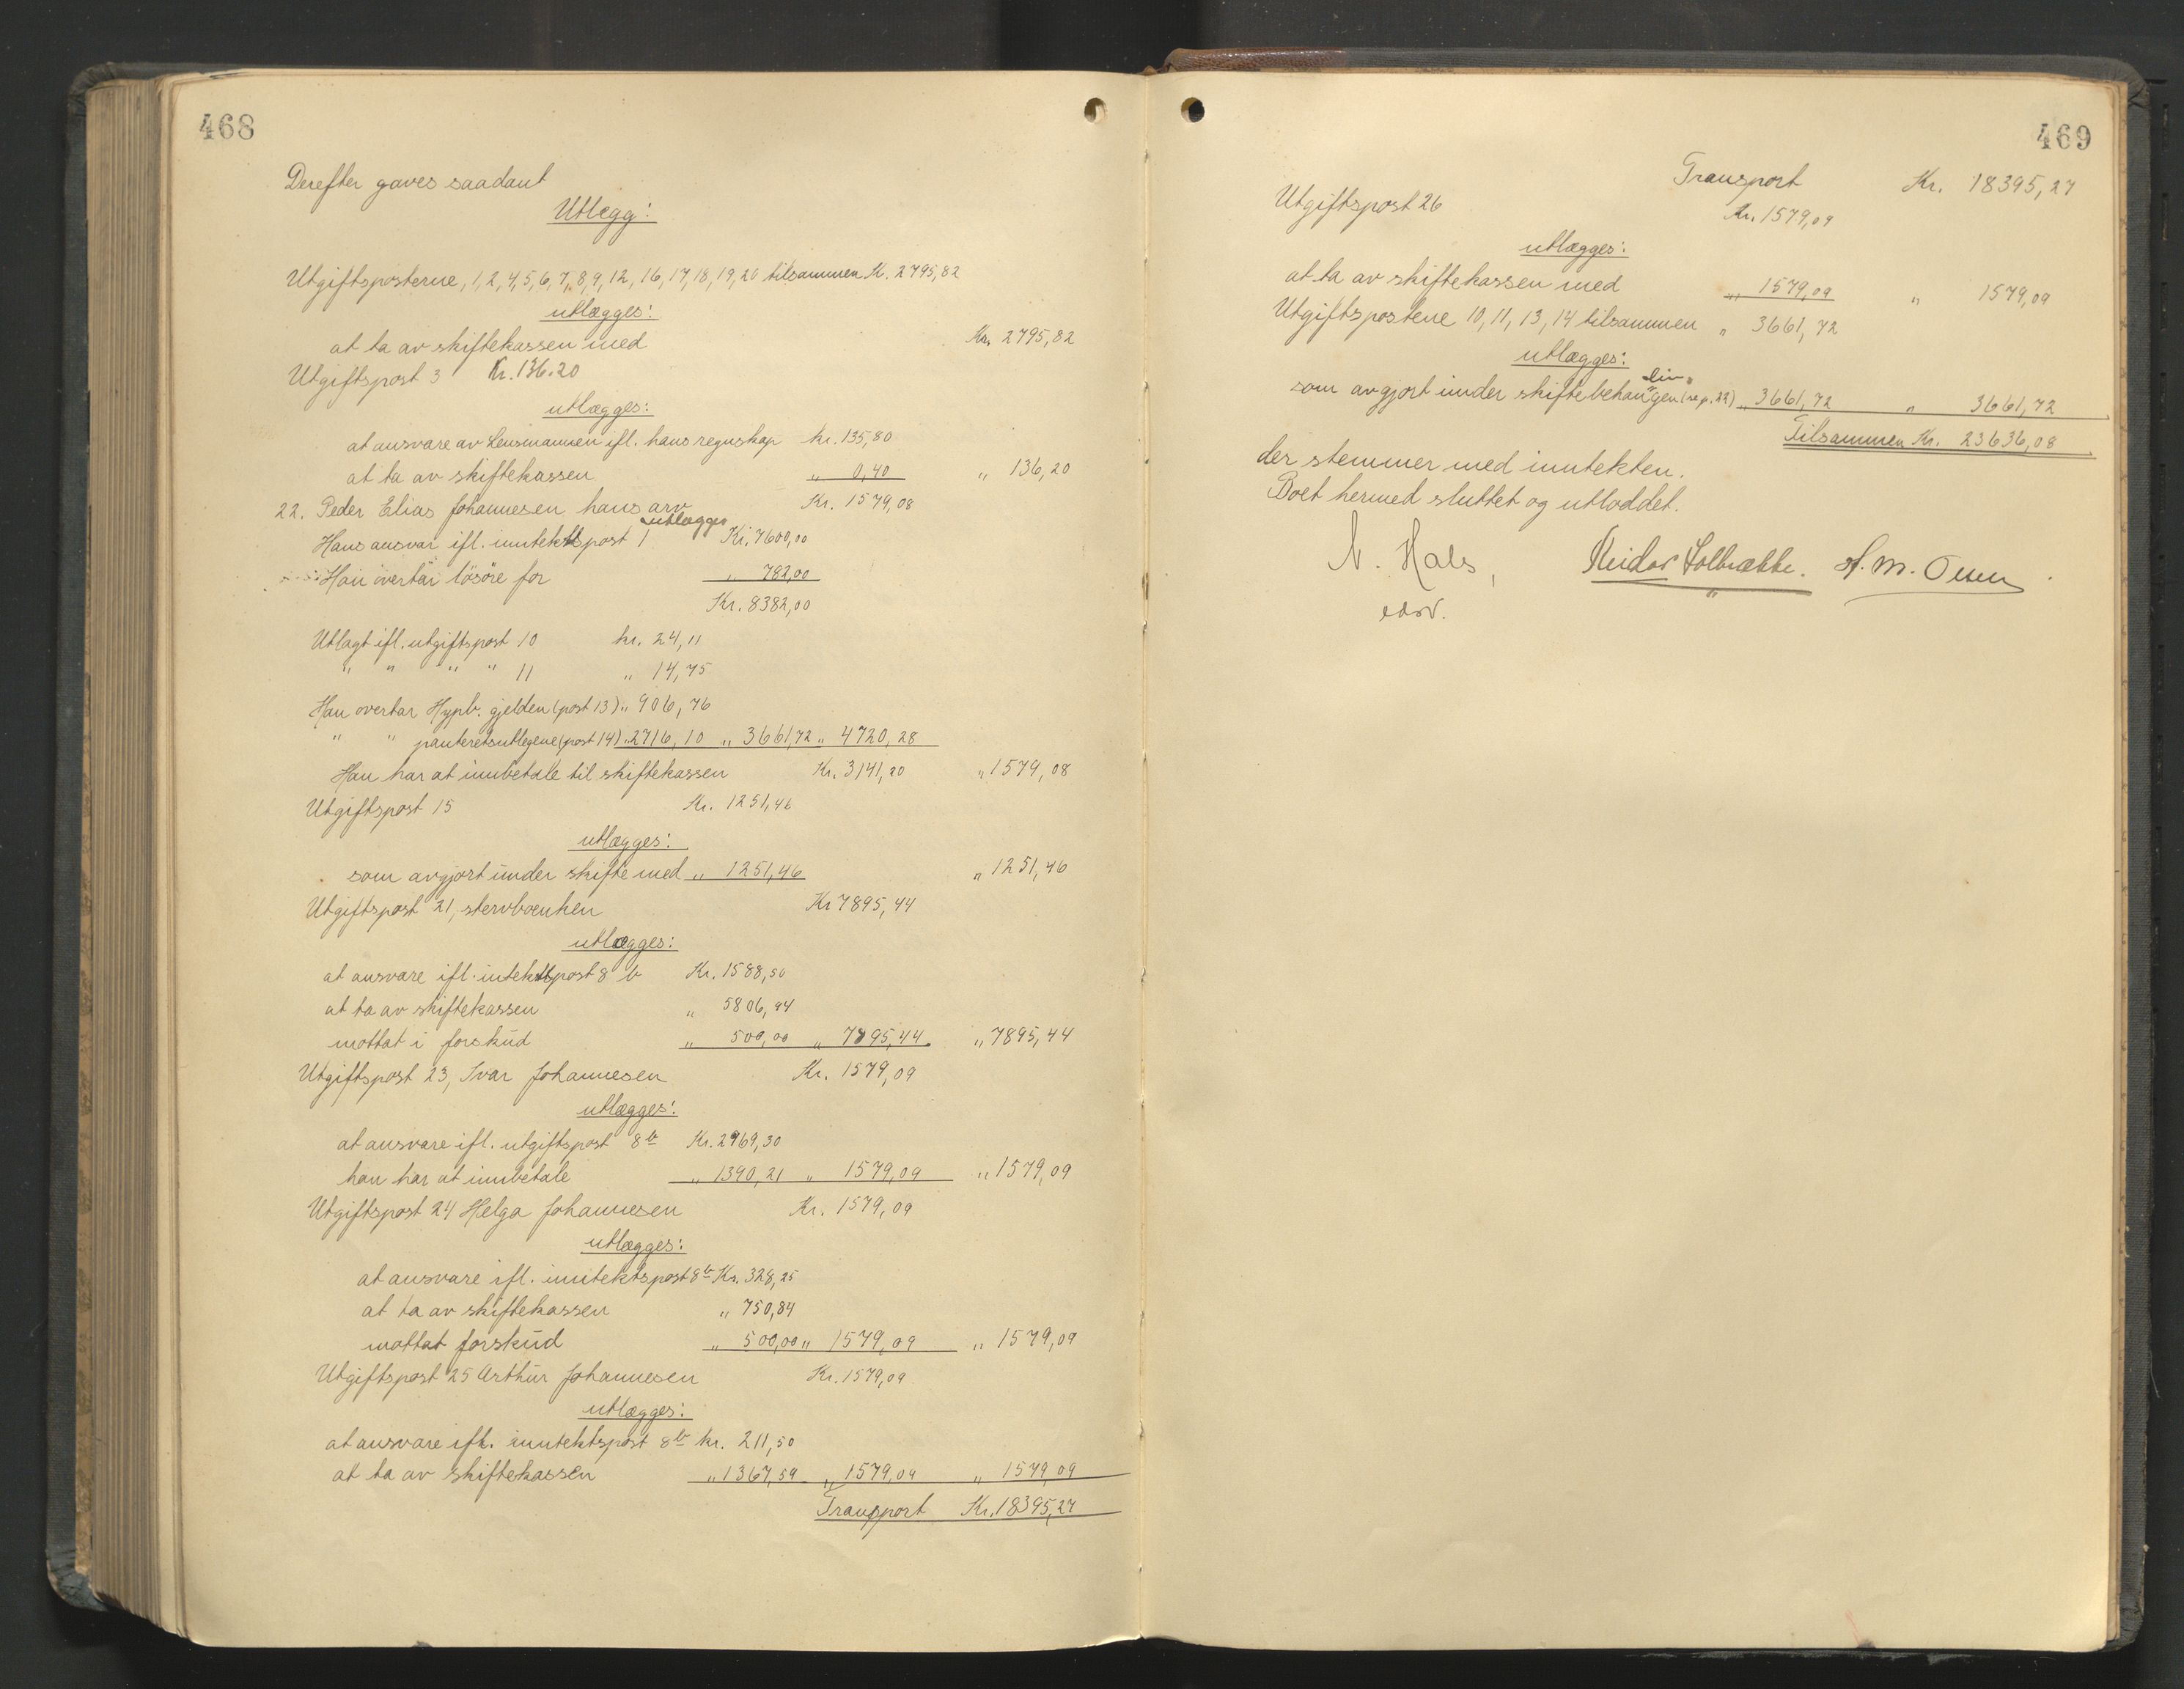 468
Derefter gaves saadant
Utlegg:
Utgiftsposterne, 1, 2, 4, 5, 6, 7, 8, 9, 12, 16, 17, 18, 19, 20 tilsammen Kr. 2795,82
utlægges:
at ta av skiftekassen med Kr. 2795,82
Utgiftspost 3 Kr. 136.20
utlægges:
at ansvare av Lensmannen ifl. hans regnskap kr. 135,80
at ta av skiftekassen " 0,40 " 136,20
22. Peder Elias Johannesen hans arv Kr. 1579,08
utlægges
Hans ansvar ifl. inntektspost 1 Kr. 7600,00
Han overtar lösöre for " 782,00
Kr. 8382,00
Utlagt ifl. utgiftspost 10 kr. 24,11
" " " " 11 " 14,75
Han overtar Hypb. gjelden (post 13) " 906,76
" " panteretsutlegene (post 14) " 2716,10 " 3661,72 " 4720,28
Han har at innbetale til skiftekassen Kr. 3141,20 " 1579,08
Utgiftspost 15 Kr. 1251,46
utlægges:
som avgjort under skifte med " 1251,46 " 1251,46
Utgiftspost 21, stervboenken Kr 7895,44
utlægges:
at ansvare ifl. intektspost 8 b Kr. 1588,50
at ta av skiftekassen " 5806,94
mottat i forskud " 500,00 " 7895,44 " 7895,44
Utgiftspost 23, Ivar Johannesen Kr. 1579,09
utlægges:
at ansvare ifl. utgiftspost 8 b Kr. 2969,30
han har at innbetale " 1390,21 " 1579,09 " 1579,09
Utgiftspost 24 Helga Johannesen Kr. 1579,09
utlægges:
at ansvare ifl. inntektspost 8 b Kr. 328,25
at ta av skiftekassen " 750,84
mottat forskud " 500,00 " 1579,09 " 1579,09
Utgiftspost 25 Arthur Johannesen Kr. 1579,09
utlægges:
at ansvare ifl. inntektspost 8 b kr. 211,50
at ta av skiftekassen " 1367,59 " 1579,09 " 1579,09
Transport Kr. 18395,27
469
Transport Kr. 18395,27
Utgiftspost 26 Kr. 1579,09
utlægges:
at ta av skiftekassen med " 1579,09 " 1579,09
Utgiftspostene 10, 11, 13, 14 tilsammen " 3661,72
utlægges:
lin
som avgjort under skiftebehangen (se p. 22) " 3661,72 " 3661,72
Tilsammen Kr. 23636,08
der stemmer med inntekten.
Boet hermed sluttet og utloddet.
N. Hals, Reidar Solbrække. A. M. Olsen
edsv.